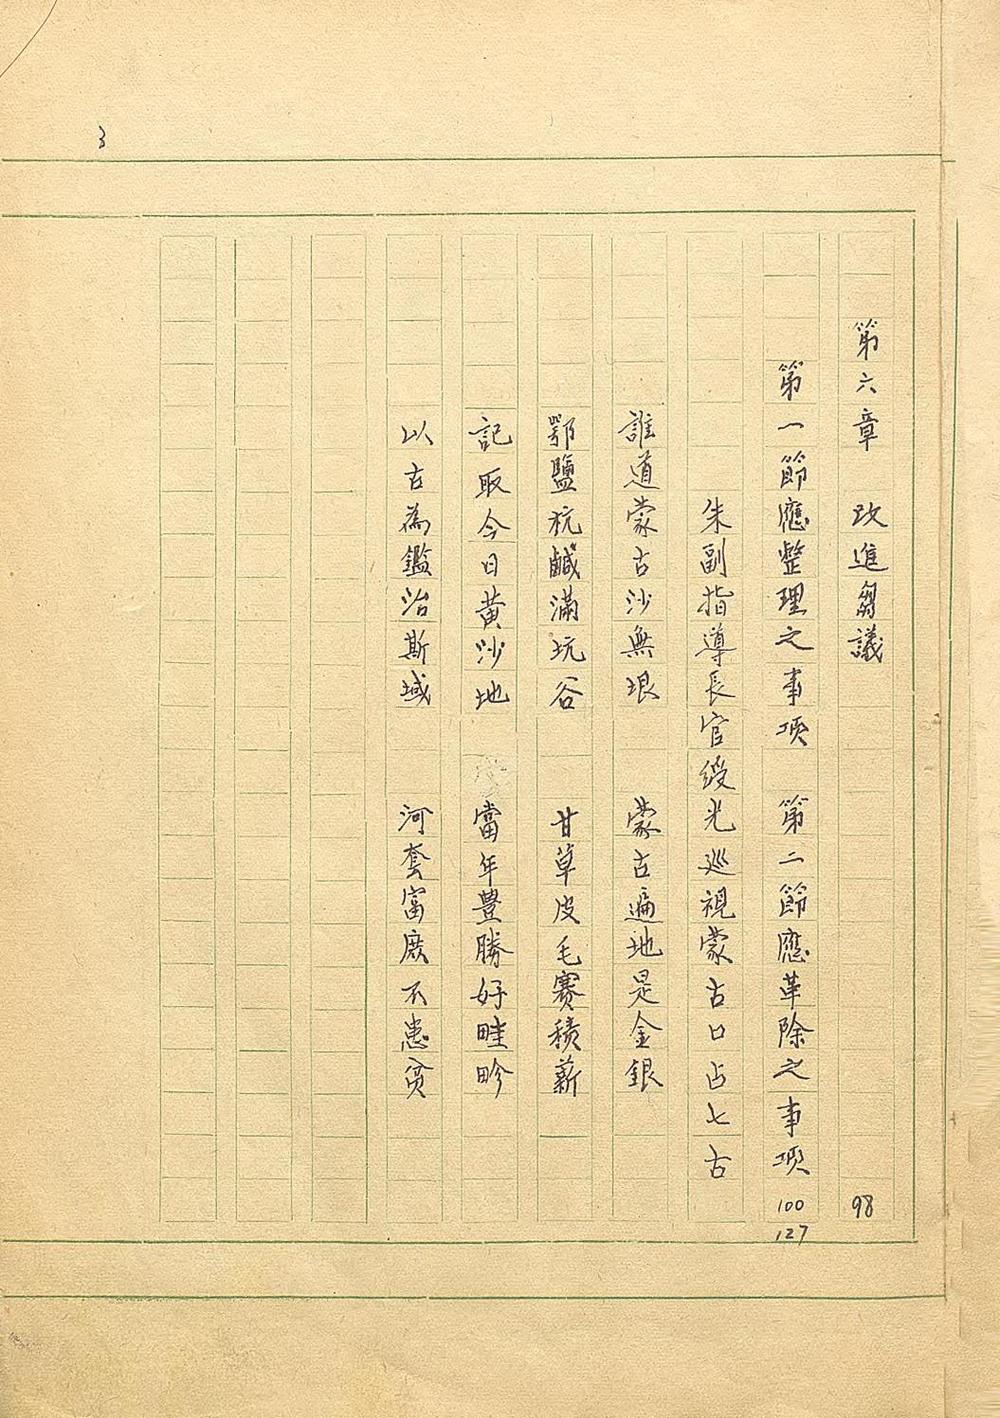 3
第六章 改進芻議 98
第一節應整理之事項 第二節應革除之事項 100 127
朱副指導長官綬光巡視蒙古口占七古
誰道蒙古沙無垠 蒙古遍地是金銀
鄂鹽杭鹹滿坑谷 甘草皮毛賽積薪
記取今日黄沙地 當年豐勝好畦畛
以古為鑑治斯域 河套富庶不患貧